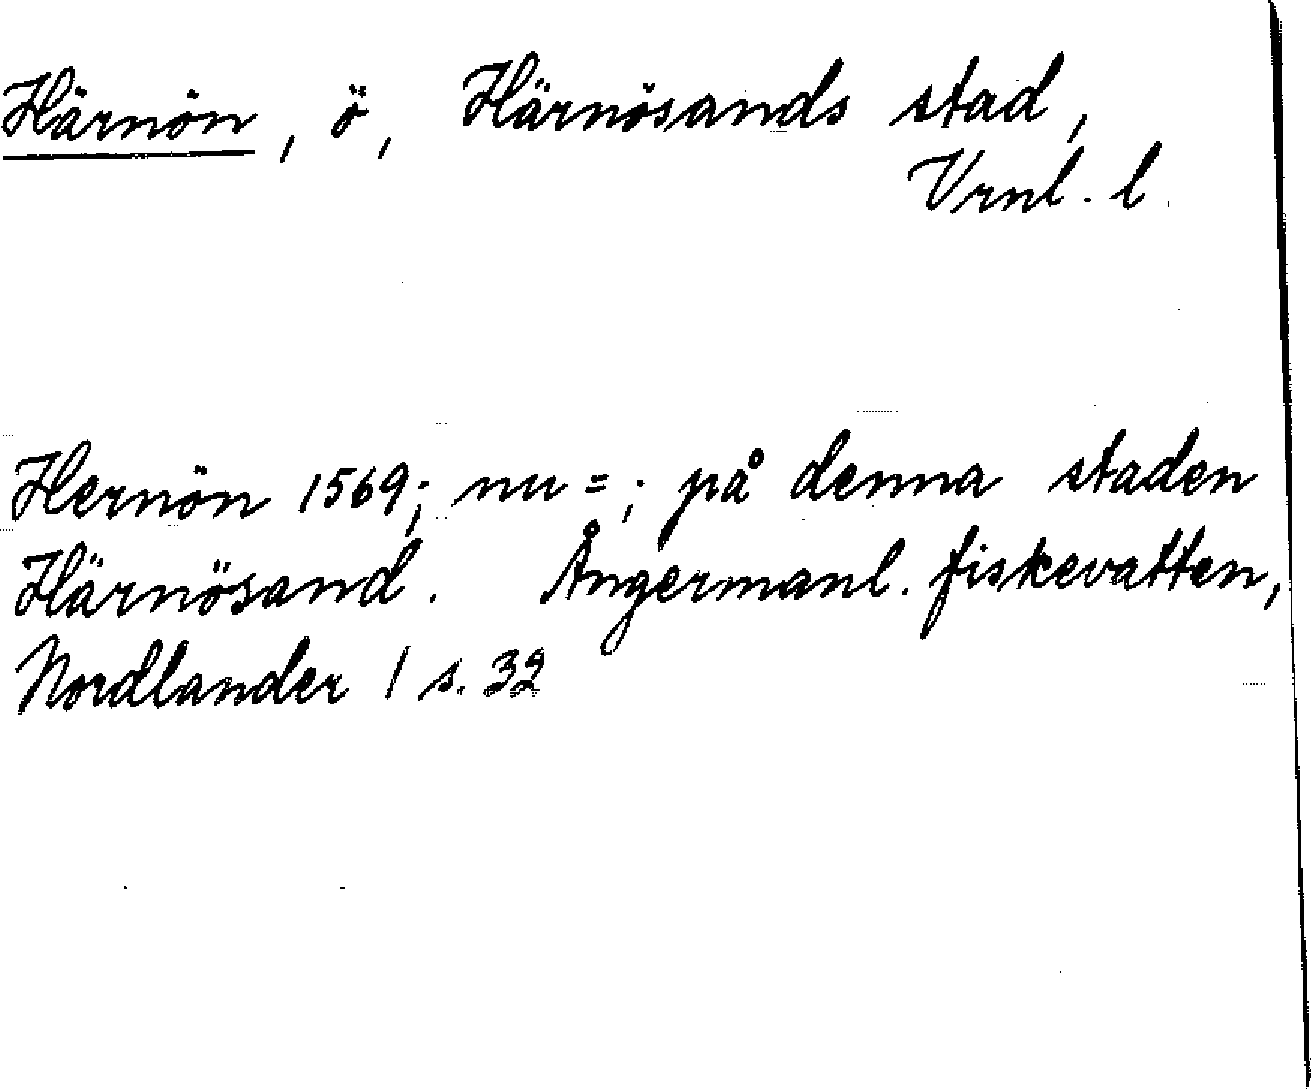 Härnön, ö, Härnösands stad,
Vrnl. l.
Hernön 1569; nu = ; på denna staden
Härnösand. Ångermanl. fiskevatten,
Nordlander I s. 32